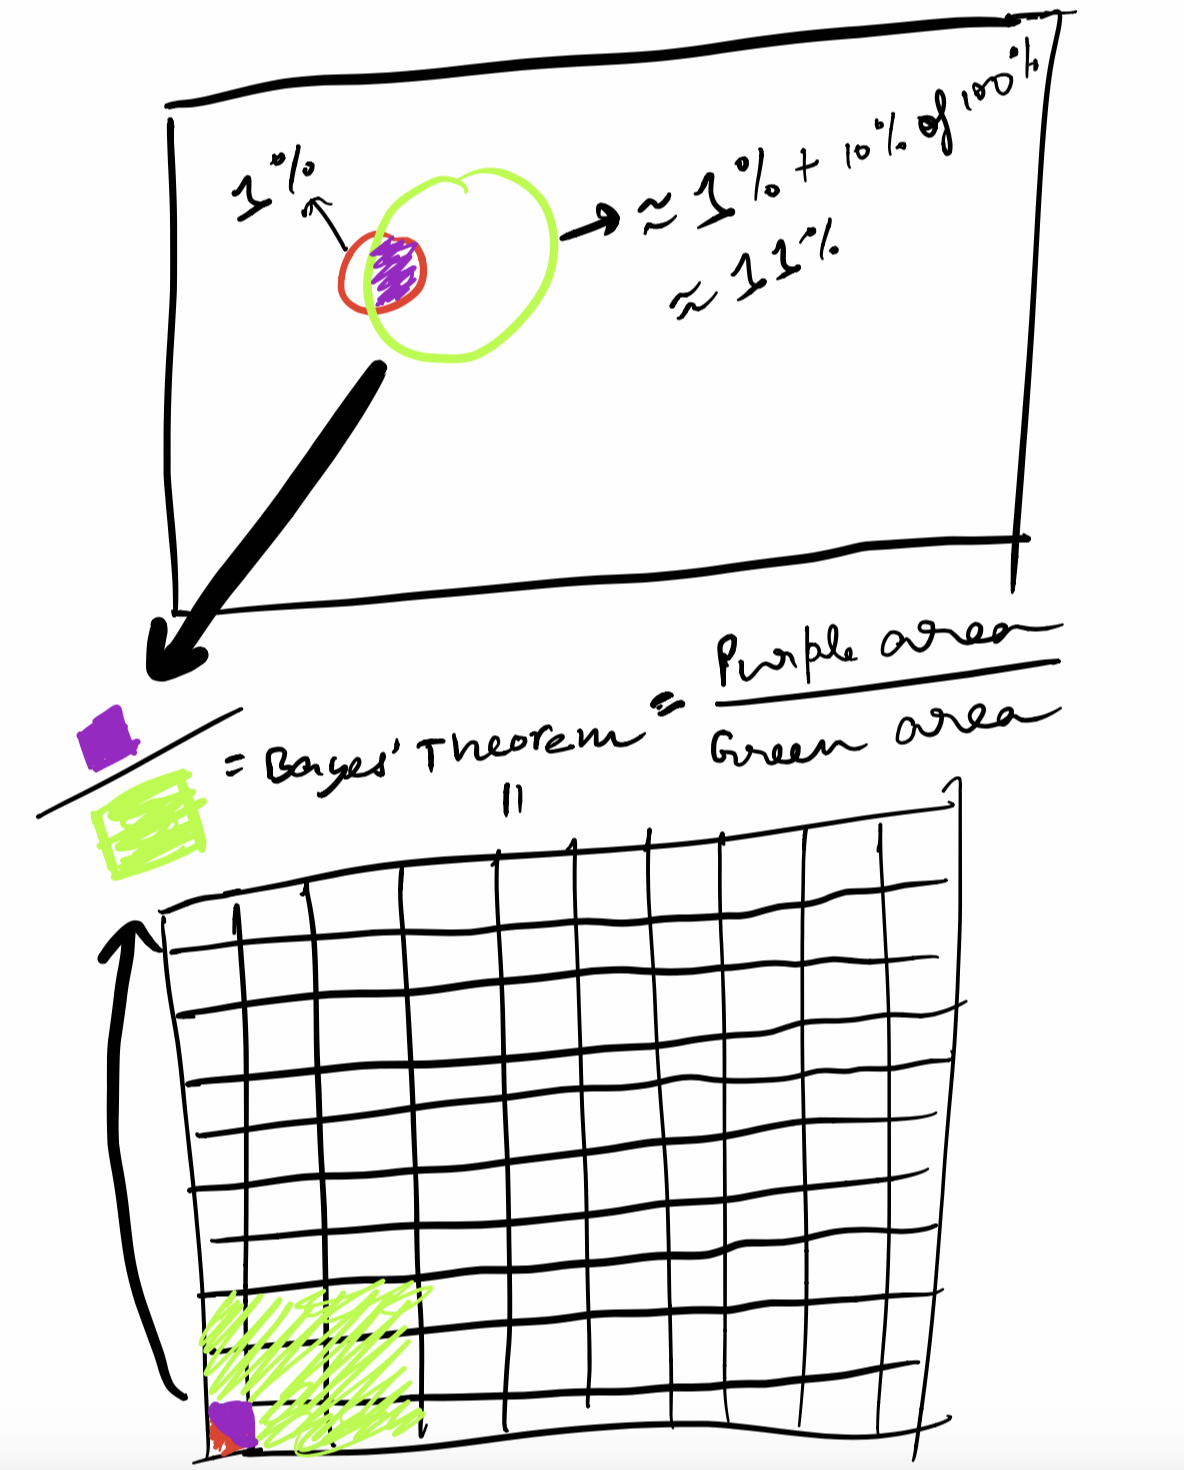 1%
≈ 1% + 10% of 100%
≈ 11%
= Bayes' Theorem = Purple area
Green area
=